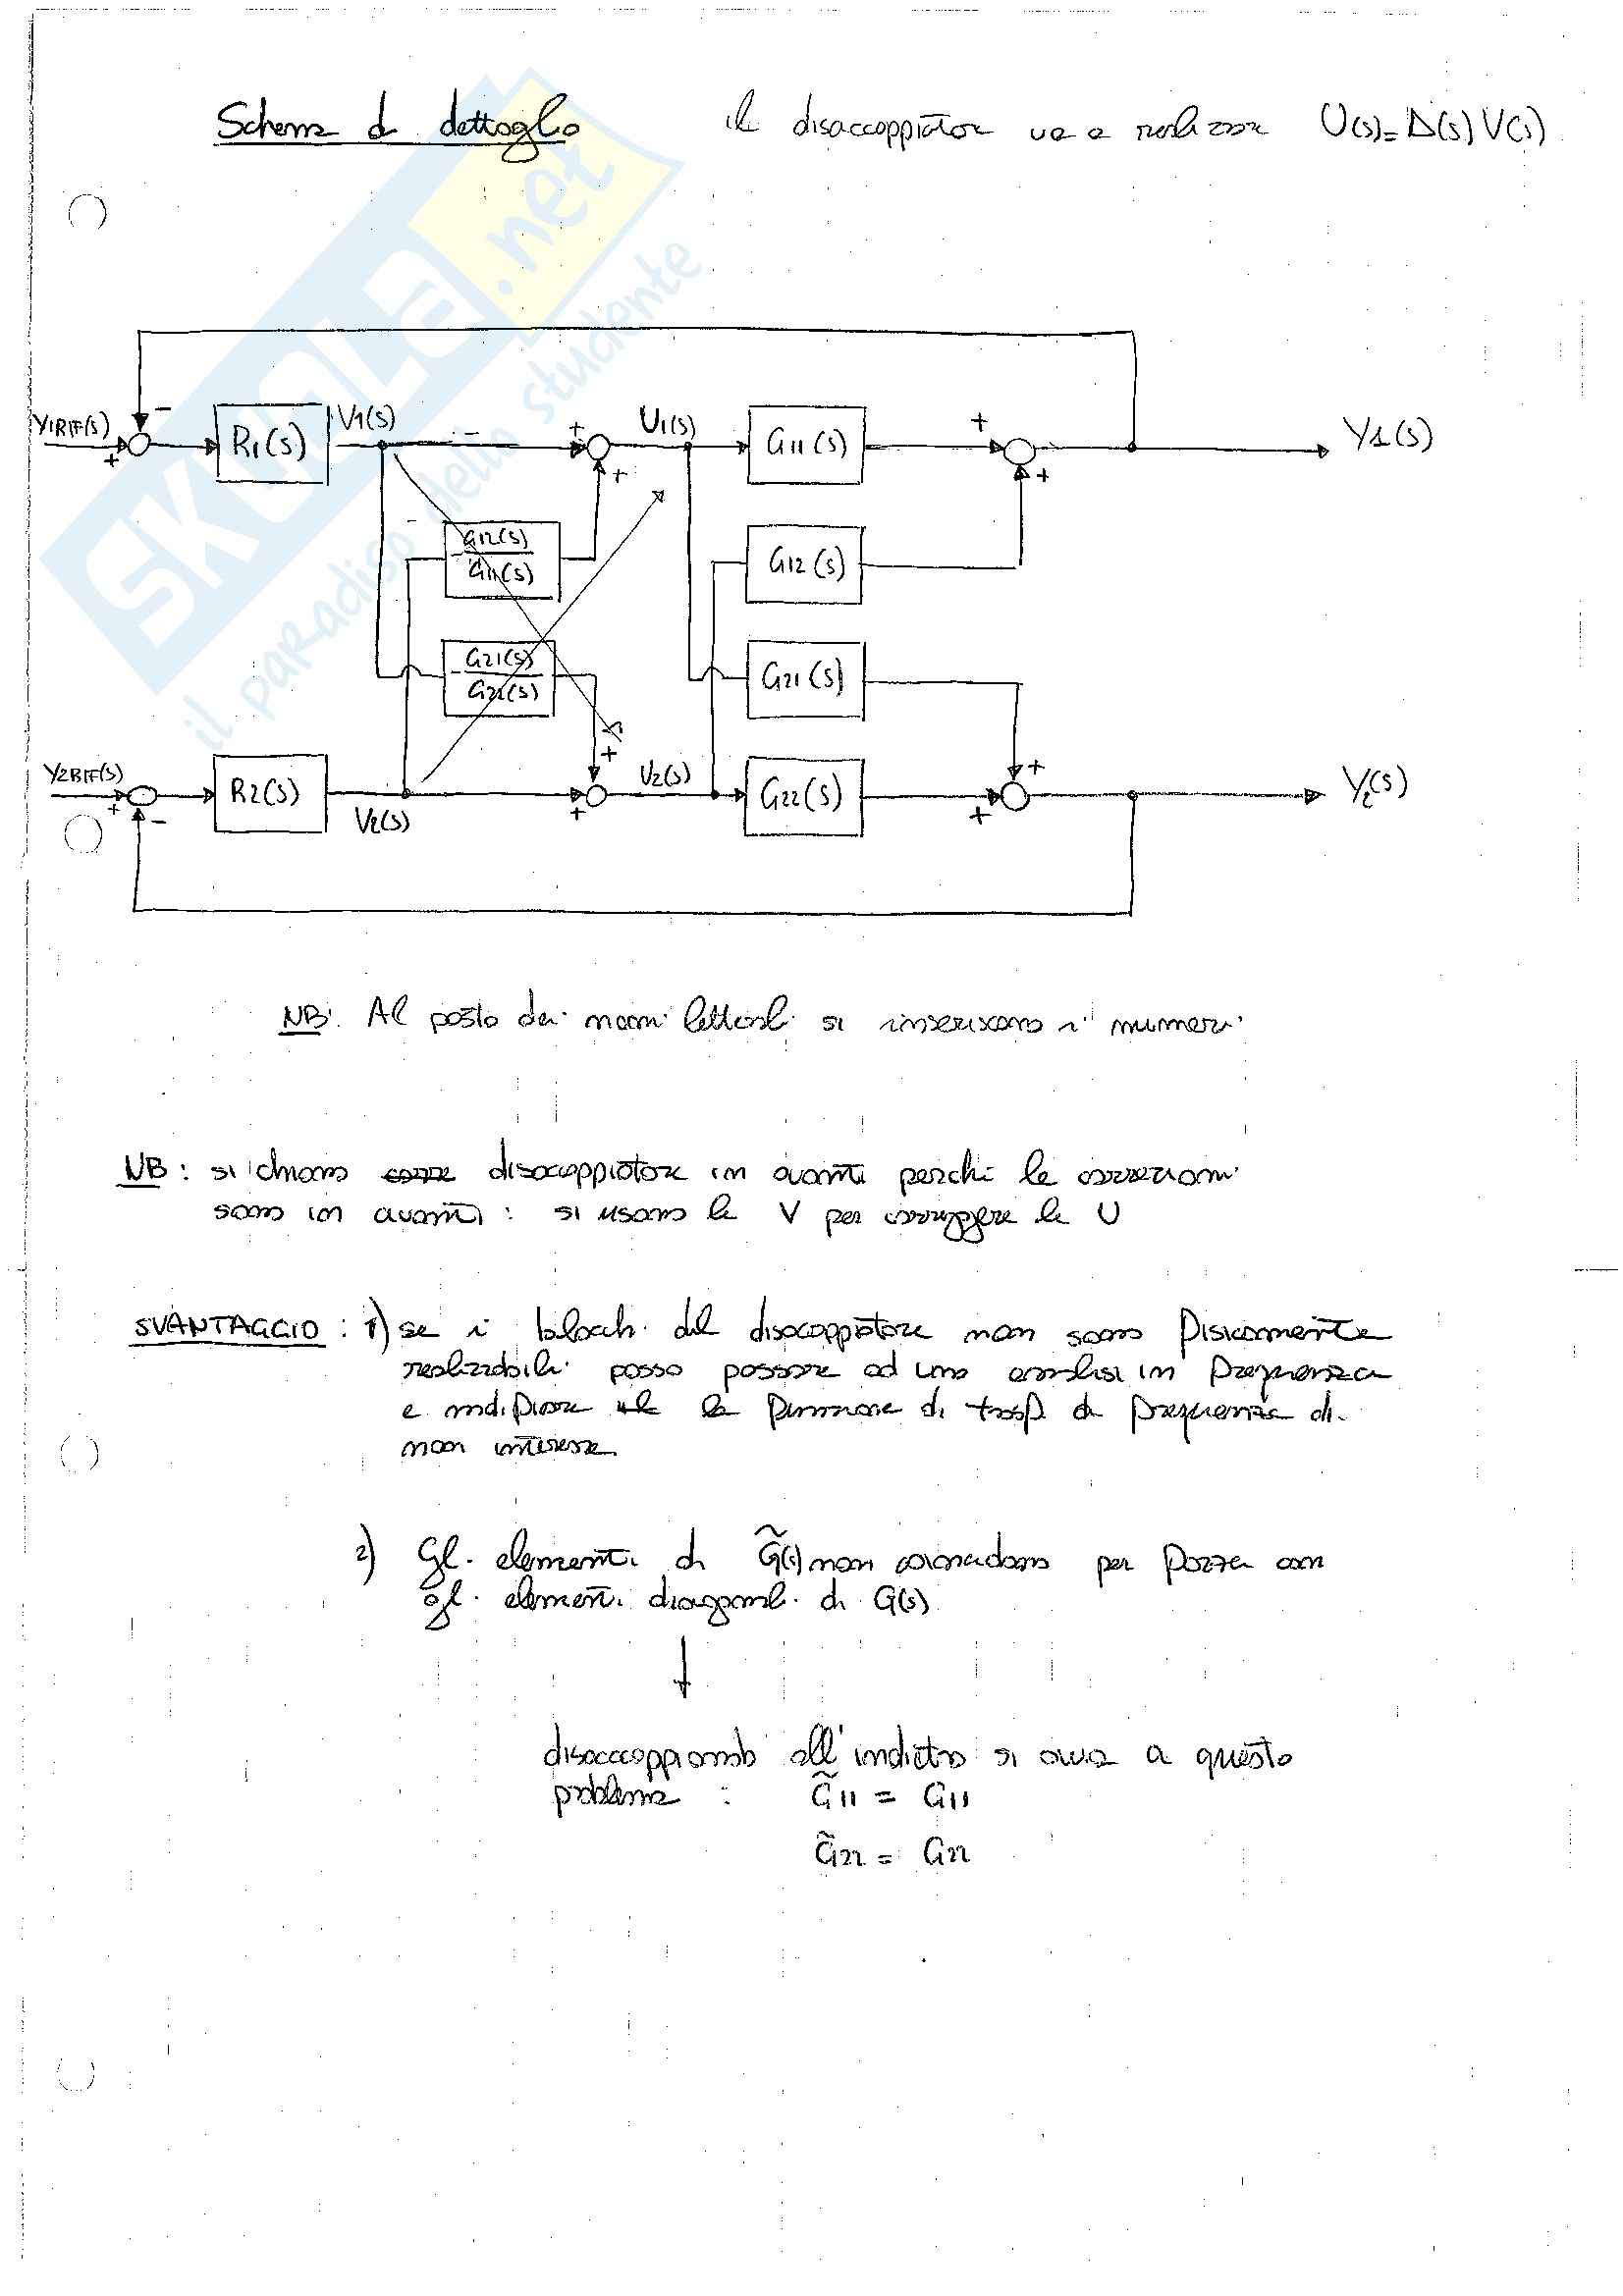 Schema di dettaglio
il disaccoppiatore va a realizzare U(s)=Δ(s)V(s)
SKUOLA.net
il paradiso dello studente
Y1RIF(s)
+
-
R1(s)
V1(s)
-
+
+
U1(s)
G11(s)
+
+
Y1(s)
-G12(s)
G11(s)
G12(s)
-G21(s)
G22(s)
G21(s)
Y2RIF(s)
+
-
R2(s)
V2(s)
+
+
U2(s)
G22(s)
+
+
Y2(s)
NB: Al posto dei nomi letterali si inseriscono i numeri
NB: si chiama come disaccoppiatore in avanti perchè le correzioni
sono in avanti: si usano le V per correggere le U
SVANTAGGIO: 1) se i blocchi del disaccoppiatore non sono fisicamente
realizzabili posso passare ad una analisi in frequenza
e modificare la funzione di trasf. a frequenze di
non interesse.
2) Gli elementi di G̃(s) non coincidono per forza con
gli elementi diagonali di G(s)
disaccoppiando all'indietro si ovvia a questo
problema : G̃11 = G11
G̃22 = G22